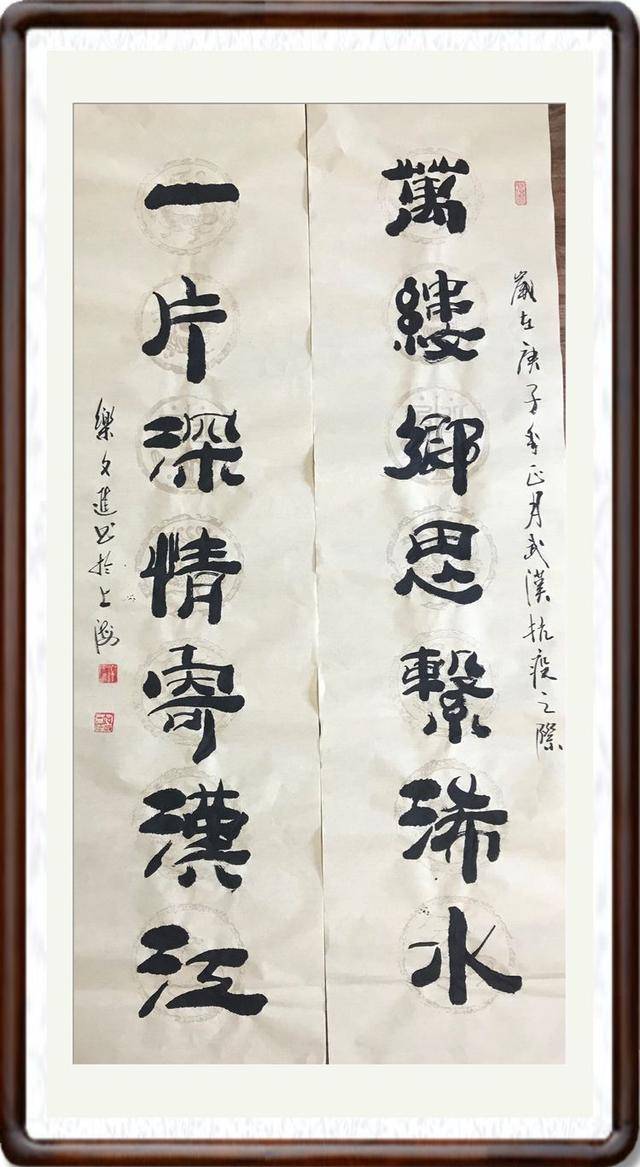 歲在庚子年正月武漢抗疫之際
萬縷鄉思繫浠水
一片深情寄漢江
樂文進书於上海